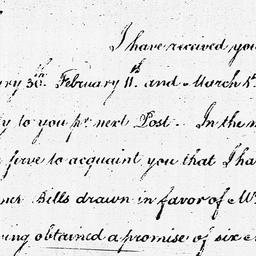 I have received you
ry 30th. February 11th. and March 5
ly to you pr. next Post. In the m
serve to acquaint you that I ha
Bills drawn in favor of M
ing obtained a promise of six